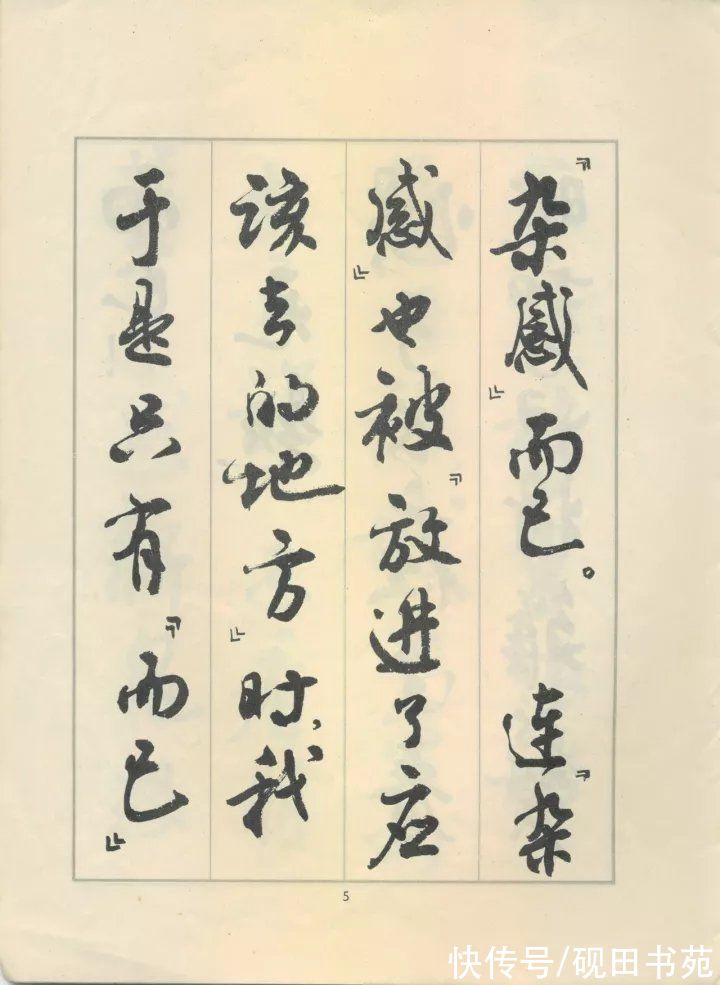 『杂感』而已。 连『杂
感』也被『放进了应
该去的地方』时、我
于是只有『而已』
5
快传号/砚田书苑